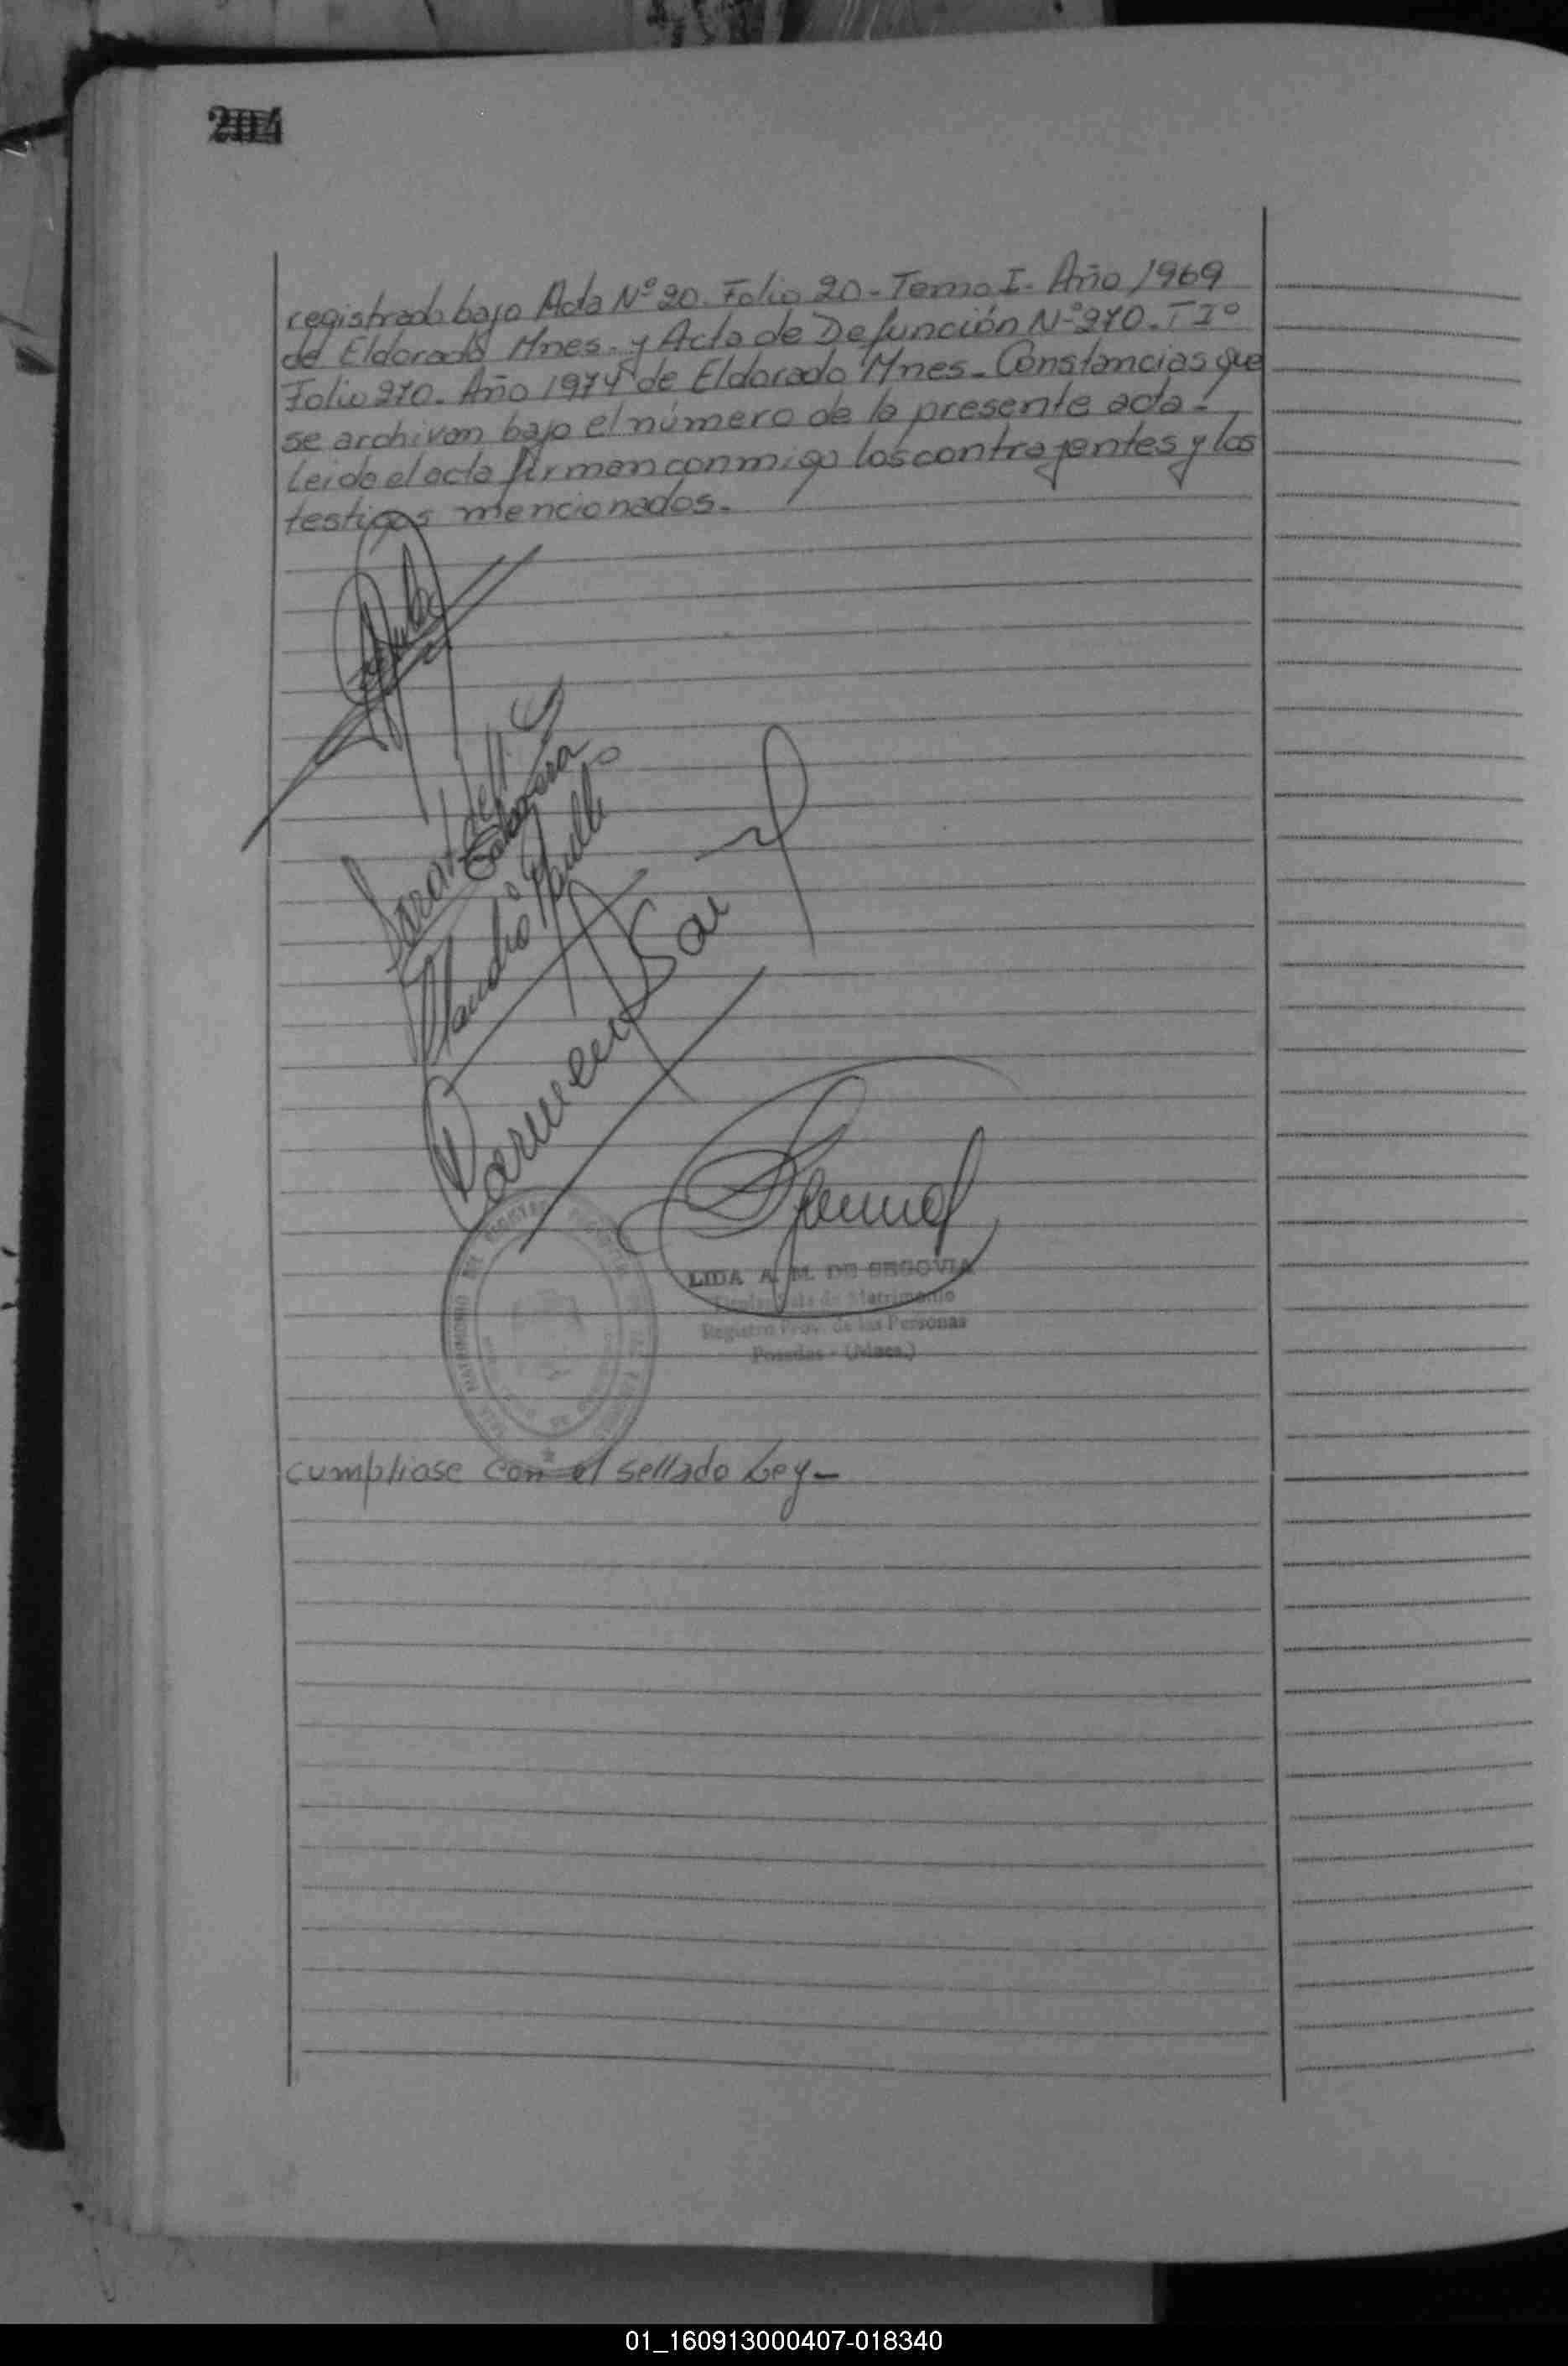 204
registrado bajo Acta Nº 20. Folio 20 - Tomo I. Año 1969
de Eldorado Mnes. y Acta de Defunción Nº 270. T Iº
Folio 270. Año 1974 de Eldorado Mnes. Constancias que
se archivan bajo el número de la presente acta.
Leida el acta firman conmigo los contrayentes y los
testigos mencionados.
Claudio
Carmen
LIDA A. M. DE SEGOVIA
Sala de Matrimonio
Registro Prov. de las Personas
Posadas - (Mnes.)
MATRIMONIO
cumpliase con el sellado Ley -
01_160913000407-018340